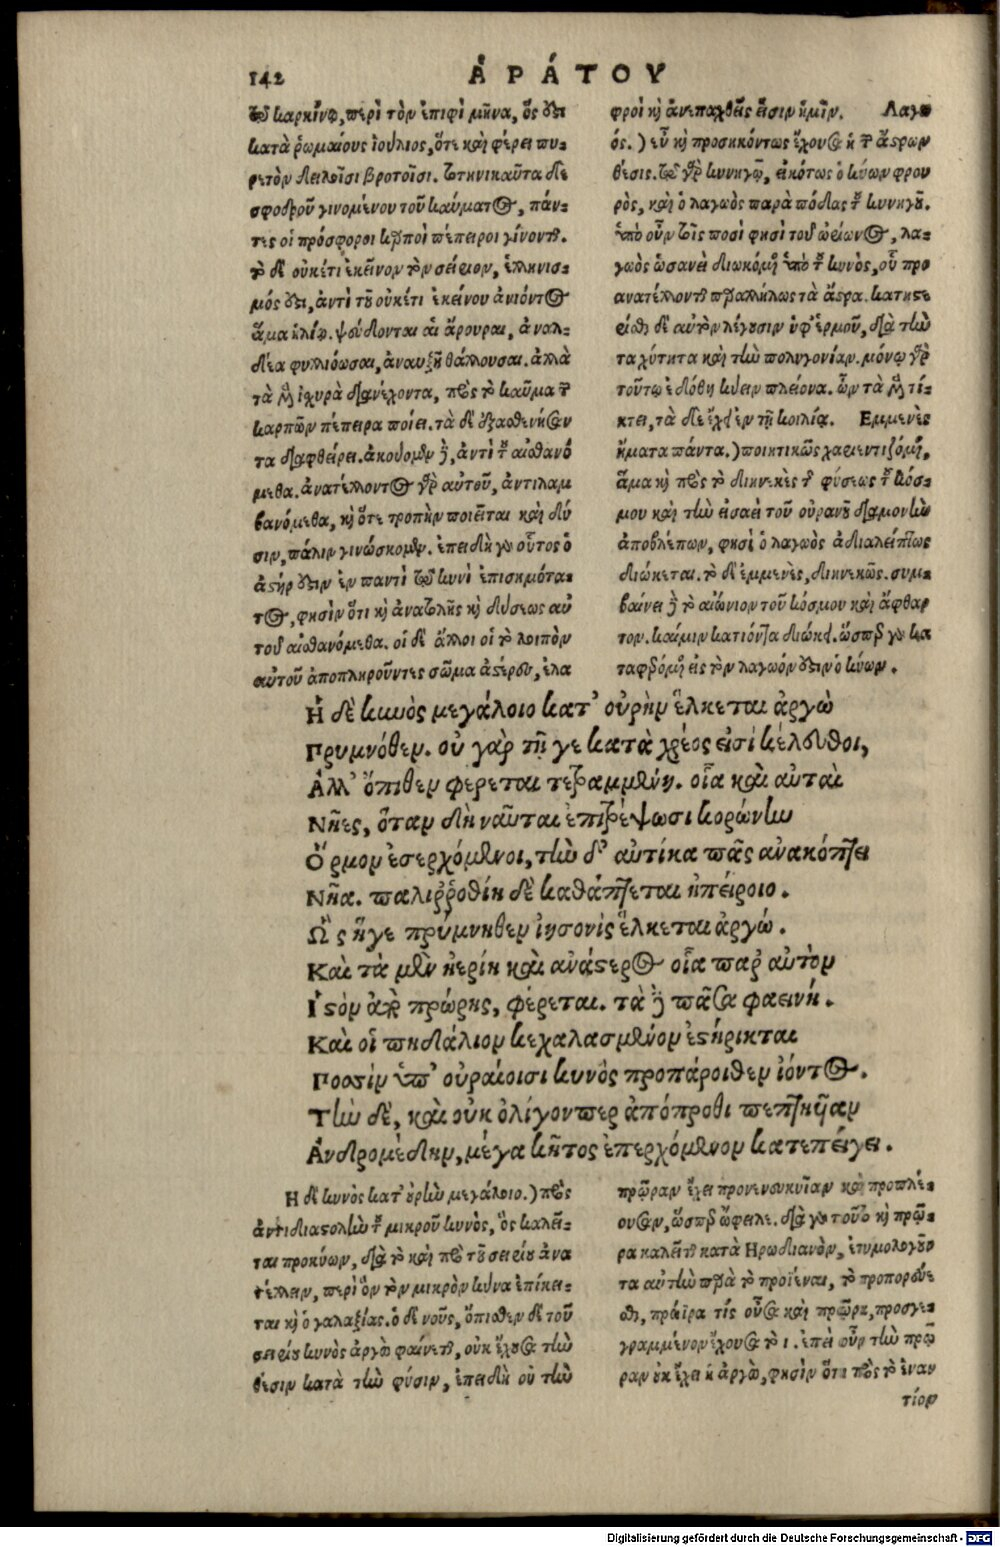 142
ἈΡΆΤΟΥ
τῷ καρκίνῳ, περὶ τὸν ἐπιφὶ μῆνα, ὅς ἐστι
κατὰ ῥωμαίους ἰούλιος, ὅτε καὶ φέρει πυ-
ρετὸν δειλοῖσι βροτοῖσι. τοτηνικαῦτα δὲ
σφοδροῦ γινομένου τοῦ καύματος, πάν-
τες οἱ πρόσφοροι καρποὶ πέπειροι γίνονται.
τὸ δὲ οὐκέτι ἐκεῖνον τὸν σείριον, ἑλληνισ-
μός ἐστι, ἀντὶ τοῦ οὐκέτι ἐκείνου ἀνιόντος
ἅμα ἡλίῳ. ψεύδονται αἱ ἄρουραι, ἀναλ-
δέα φυλλιόωσαι, ἀναυξῆ θάλλουσαι. ἀλλὰ
τὰ μὲν ἰχυρὰ διανέχοντα, πρὸς τὸ καῦμα τῶν
καρπῶν πέπειρα ποιεῖ. τὰ δὲ ἐξασθενήσαν
τα διαφθείρει. ἀκούομεν δὲ, ἀντὶ τοῦ αἰσθανό
μεθα. ἀνατέλλοντος γὰρ αὐτοῦ, ἀντιλαμ
βανόμεθα, κὴ ὅτε τροπὴν ποιεῖται καὶ δύ
σιν, πάλιν γινώσκομεν. ἐπειδὴ γὰρ οὗτος ὁ
ἀστήρ ἐστιν ἐν παντὶ τῷ κυνὶ ἐπισημότα-
τος, φησὶν ὅτι κὴ ἀνατολῆς κὴ δύσεως αὐ
τοῦ αἰσθανόμεθα. οἱ δὲ ἄλλοι οἱ τὸ λοιπὸν
αὐτοῦ ἀποπληροῦντες σῶμα ἀστέρες, ἐλα
φροὶ κὴ ἀνεπαχθεῖς εἰσιν ἡμῖν. Λαγω
ός.) εὖ κὴ προσηκόντως ἔχουσα ἡ τῶν ἄστρων
θέσις. τῷ γὰρ κυνηγῷ, εἰκότως ὁ κύων φρου
ρὸς, καὶ ὁ λαγωὸς παρὰ πόδας τοῦ κυνηγοῦ.
ὑπὸ οὖν τοῖς ποσὶ φησὶ τοῦ ὠρίωνος, λα-
γωὸς ὡσανεὶ διωκόμενος ὑπὸ τοῦ κυνὸς, οὗ προ
ανατέλλονται παραλλήλως τὰ ἄστρα. κατηστε
ρίσθαι δὲ αὐτὸν λέγουσιν ὑφ' ἑρμοῦ, διὰ τὴν
ταχύτητα καὶ τὴν πολυγονίαν. μόνῳ γὰρ
τούτῳ ἐδόθη κύειν πλείονα. ὧν τὰ μὲν τί-
κτει, τὰ δὲ ἔχει ἐν τῇ κοιλίᾳ. Ἐμμενὲς
ἤματα πάντα.) ποιητικῶς χαριεντιζόμενος,
ἅμα κὴ πρὸς τὸ διηνεκὲς τῆς φύσεως τοῦ κόσ-
μου καὶ τὴν εἰσαεὶ τοῦ οὐρανοῦ διαμονὴν
ἀποβλέπων, φησὶ ὁ λαγωὸς ἀδιαλείπτως
διώκεται. τὸ δὲ ἐμμενὲς, διηνεκῶς. συμ-
βαίνει δὲ τὸ αἰώνιον τοῦ κόσμου καὶ ἄφθαρ
τον. καί μιν κατιόντα διώκει. ὥσπερ γὰρ κα
ταφερόμενος εἰς τὸν λαγωόν ἐστιν ὁ κύων.
Ἡ δὲ κυνὸς μεγάλοιο κατ' οὐρὴν ἕλκεται ἀργὼ
Πρυμνόθεν. οὐ γὰρ τῇ γε κατὰ χρέος εἰσὶ κέλευθοι,
Ἀλλ' ὄπιθεν φέρεται τετραμμένη. οἷα καὶ αὐταὶ
Νῆες, ὅταν δὴ ναῦται ἐπιστρέψωσι κορώνην
Ὅρμον ἐσερχόμενοι, τὴν δ' αὐτίκα πᾶς ἀνακόπτει
Νῆα. παλιρροθίη δὲ καθάπτεται ἠπείροιο.
Ὣς ἥγε πρύμνηθεν ἰησονὶς ἕλκεται ἀργώ.
Καὶ τὰ μὲν ἠερίη καὶ ἀνάστερος οἷα παρ' αὐτὸν
Ἱστὸν ἀπὸ πρώρης, φέρεται. τὰ δὲ πᾶσα φαεινή.
Καὶ οἱ πηδάλιον κεχαλασμένον ἐστήρικται
Ποσσὶν ὑπ' οὐραίοισι κυνὸς προπάροιθεν ἰόντος.
Τὴν δὲ, καὶ οὐκ ὀλίγον περ ἀπόπροθι πεπτηῦαν
Ἀνδρομέδην, μέγα κῆτος ἐπερχόμενον κατεπείγει.
Ἡ δὲ κυνὸς κατ' οὐρὴν μεγάλοιο.) πρὸς
ἀντιδιαστολὴν τοῦ μικροῦ κυνὸς, ὃς καλεῖ-
ται προκύων, διὰ τὸ καὶ πρὸ τοῦ σειρίου ἀνα
τέλλειν, περὶ ὃν τὸν μικρὸν κύνα ἐπίκει-
ται κὴ ὁ γαλαξίας. ὁ δὲ νοῦς, ὄπισθεν δὲ τοῦ
σειρίου κυνὸς ἀργὼ φαίνεται, οὐκ ἔχουσα τὴν
θέσιν κατὰ τὴν φύσιν, ἐπειδὴ οὐ τὴν
πρῷραν ἔχει προνενευκυῖαν καὶ προπλέ-
ουσαν, ὥσπερ ὤφειλε. διὰ γὰρ τοῦτο κὴ πρῷ-
ρα καλεῖται κατὰ Ἡρωδιανὸν, ἐτυμολογοῦσι
τα αὐτὴν παρὰ τὸ προϊέναι, τὸ προπορεύε
σθαι, πρόειρα τὶς οὖσα καὶ πρῷρα, προσγε-
γραμμένον ἔχουσα τὸ ι. ἐπεὶ οὖν τὴν πρῷ
ραν οὐκ ἔχει ἡ ἀργὼ, φησὶν ὅτι πρὸς τὸ ἐναν
τίον
Digitalisierung gefördert durch die Deutsche Forschungsgemeinschaft - DFG